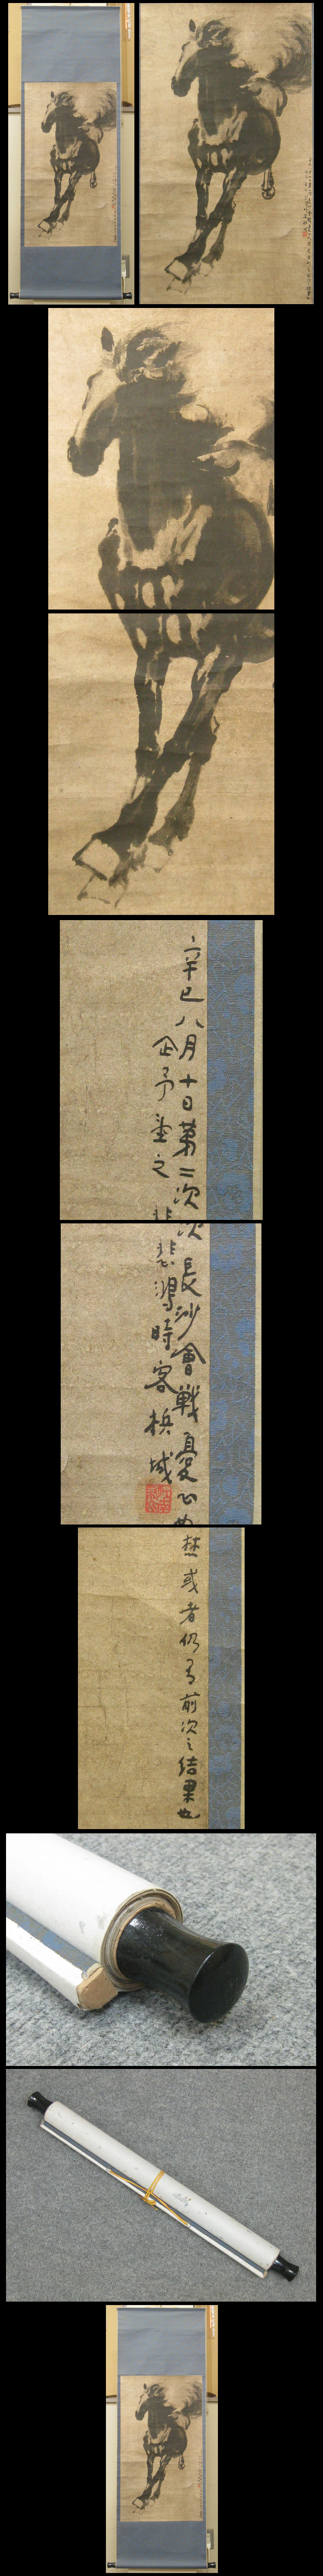 辛巳八月十日第二次長沙會戰憂心如焚或者仍有前次之結果也
企予望之悲鴻時客梹城